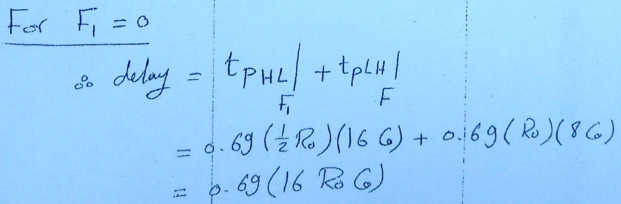 For F₁ = 0
∴ delay = tPHL|F₁ + tPLH|F
= 0.69 (½ R₀) (16 C₀) + 0.69 (R₀) (8 C₀)
= 0.69 (16 R₀ C₀)